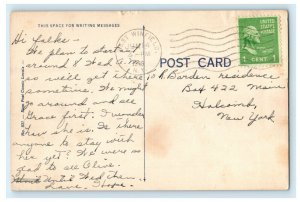 THIS SPACE FOR WRITING MESSAGES
Hi folks—
We plan to start at
around 8 Wed A.M.
so we'll get there
sometime. We might
go around and see
Grace first. I wonder
how she is. Is there
anyone to stay with
her yet? We were so
glad to see Olive.
Until Wed then,
Love,
POST CARD
Borden residence
Box 422 Main
Holcomb,
New York
UNITED STATES
POSTAGE
1 CENT 1